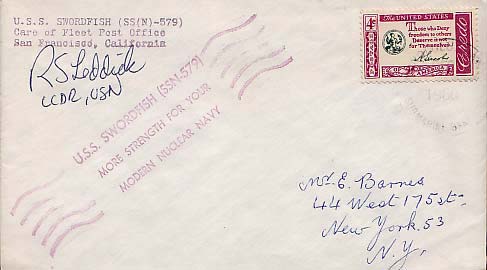 U.S.S. SWORDFISH (SS(N)-579)
Care of Fleet Post Office
San Francisco, California
RS Loddick
LCDR, USN
U.S.S. SWORDFISH (SSN-579)
MORE STRENGTH FOR YOUR
MODERN NUCLEAR NAVY
4¢
The UNITED STATES
Those who Deny
freedom to others
Deserve it not
for Themselves
A. Lincoln
Credo
of
AMERICA
Mr. E. Barnes
44 West 175 st-
New York. 53
N.Y.